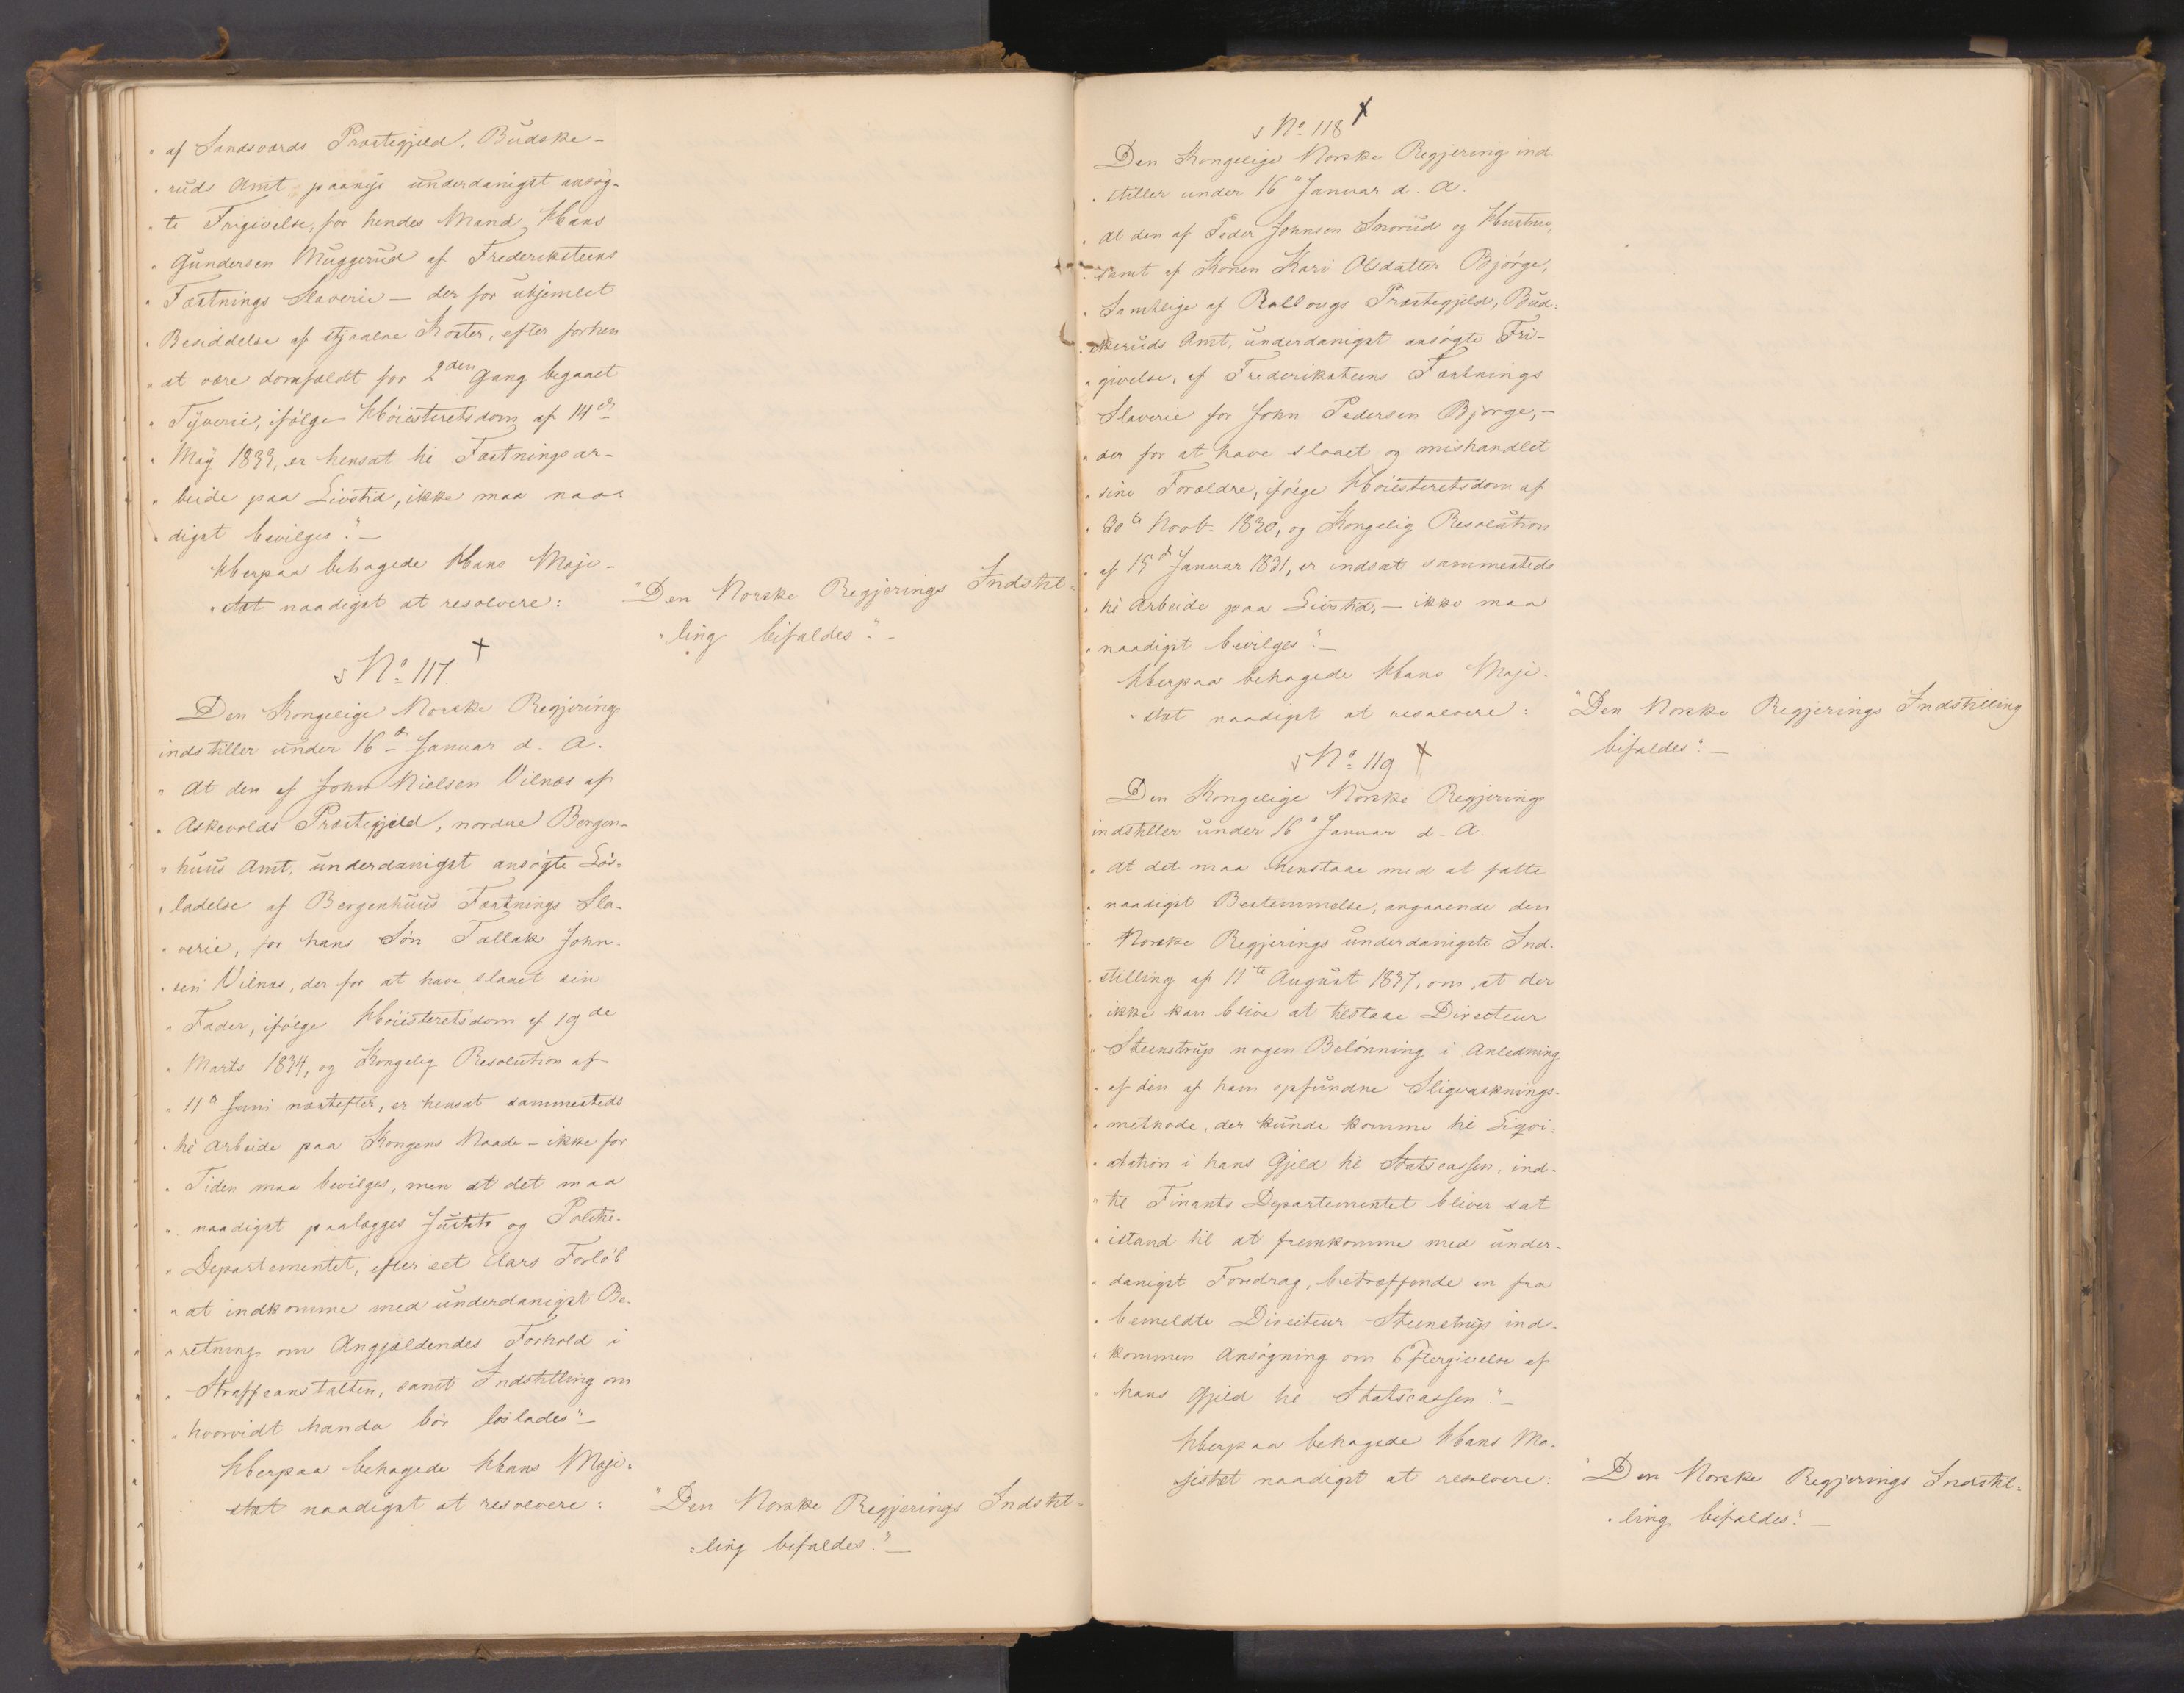 " af Sandsværds Præstegjeld, Budske-
" ruds Amt paanyt underdanigst ansøg-
" te Frigivelse, for hendes Mand Hans
" Gundersen Muggerud af Frederiksteens
" Fæstnings Slaverie – der for uhjemlet
" Besiddelse af stjaalne Koster, efter forhen
" at være domfældt for 2den Gang begaaet
" Tyverie, ifølge Høiesteretsdom af 14de
" May 1833, er hensat til Fæstningsar-
" beide paa Livstid, ikke maa naa-
" digst bevilges". –
Herpaa behagede Hans Maje-
" stæt naadigst at resolvere:
"Den Norske Regjerings Indstil-
" ling bifaldes". –
No 117. +
Den Kongelige Norske Regjering
indstiller under 16de Januar d. A.
" At den af John Nielsen Vilnæs af
" Askevolds Præstegjeld, nordre Bergen-
" huus Amt, underdanigst ansøgte Løs-
" ladelse af Bergenhuus Fæstnings Sla-
" verie, for hans Søn Tallak John-
" sen Vilnæs, der for at have slaaet sin
" Fader, ifølge Høiesteretsdom af 19de
" Marts 1834, og Kongelig Resolution af
" 11te Juni næstefter, er hensat sammesteds
" til Arbeide paa Kongens Naade – ikke for
" Tiden maa bevilges, men at det maa
" naadigst paalægges Justits og Politie-
" Departementet, efter eet Aars Forløb
" at indkomme med underdanigst Be-
" retning om Angjældendes Forhold i
" Straffeanstalten, samt Indstilling om
" hvorvidt handa bør løslades". –
Herpaa behagede Hans Maje-
stæt naadigst at resolvere:
"Den Norske Regjerings Indstil-
" ling bifaldes". –
No 118 +
Den Kongelige Norske Regjering ind
" stiller under 16de Januar d. A.
" At den af Peder Johnsen Snorud og Hustrue,
" samt af Konen Kari Olsdatter Bjørge,
" Samtlige af Rallougs Præstegjeld, Bud-
" skeruds Amt, underdanigst ansøgte Fri-
" givelse, af Frederiksteens Fæstnings
Slaverie for John Pedersen Bjørge, –
" der for at have slaaet og mishandlet
" sine Forældre, ifølge Høiesteretsdom af
" 30te Novbr. 1830, og Kongelig Resolution
" af 15de Januar 1831, er indsat sammesteds
" til Arbeide paa Livstid, – ikke maa
" naadigst bevilges". –
Herpaa behagede Hans Maje-
" stæt naadigst at resolvere:
"Den Norske Regjerings Indstilling
bifaldes". –
No 119 +
Den Kongelige Norske Regjering
indstiller under 16de Januar d. A.
" At det maa henstaae med at fatte
" naadigst Bestemmelse, angaaende den
" Norske Regjerings underdanigste Ind-
" stilling af 11te August 1837, om, at der
" ikke kan blive at tilstaae Directeur
" Steenstrup nogen Belønning i Anledning
" af den af ham opfundne Sligvasknings-
" methode, der kunde komme til Liqvi-
" dation i hans Gjeld til Statscassen, ind-
" til Finants Departementet bliver sat
" istand til at fremkomme med under-
" danigst Foredrag, betræffende en fra
" bemeldte Directeur Steenstrup ind-
" kommen Ansøgning om Eftergivelse af
" hans Gjeld til Statscassen". –
Herpaa behagede Hans Ma-
jestæt naadigst at resolvere:
"Den Norske Regjerings Indstil-
" ling bifaldes". –